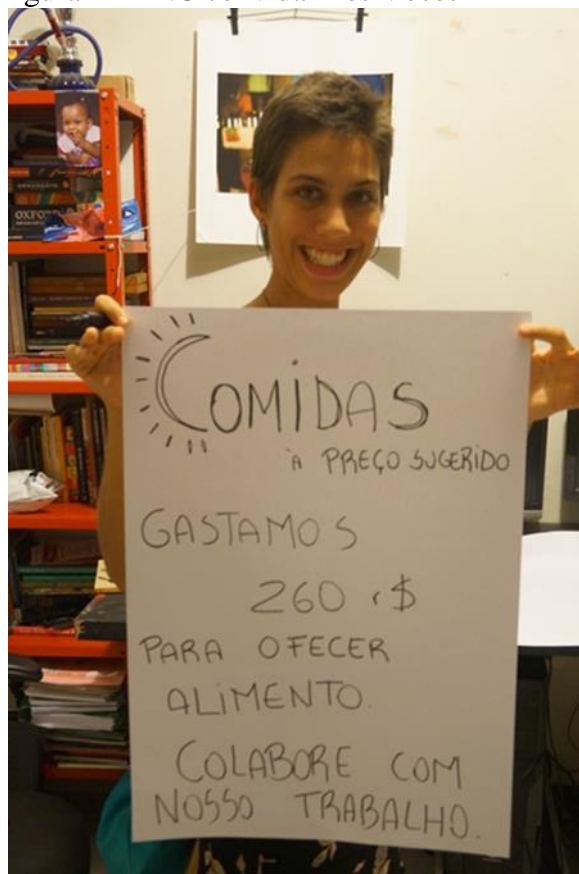 COMIDAS
À PREÇO SUGERIDO
GASTAMOS
260 r$
PARA OFECER
ALIMENTO.
COLABORE COM
NOSSO TRABALHO.
OXFORD